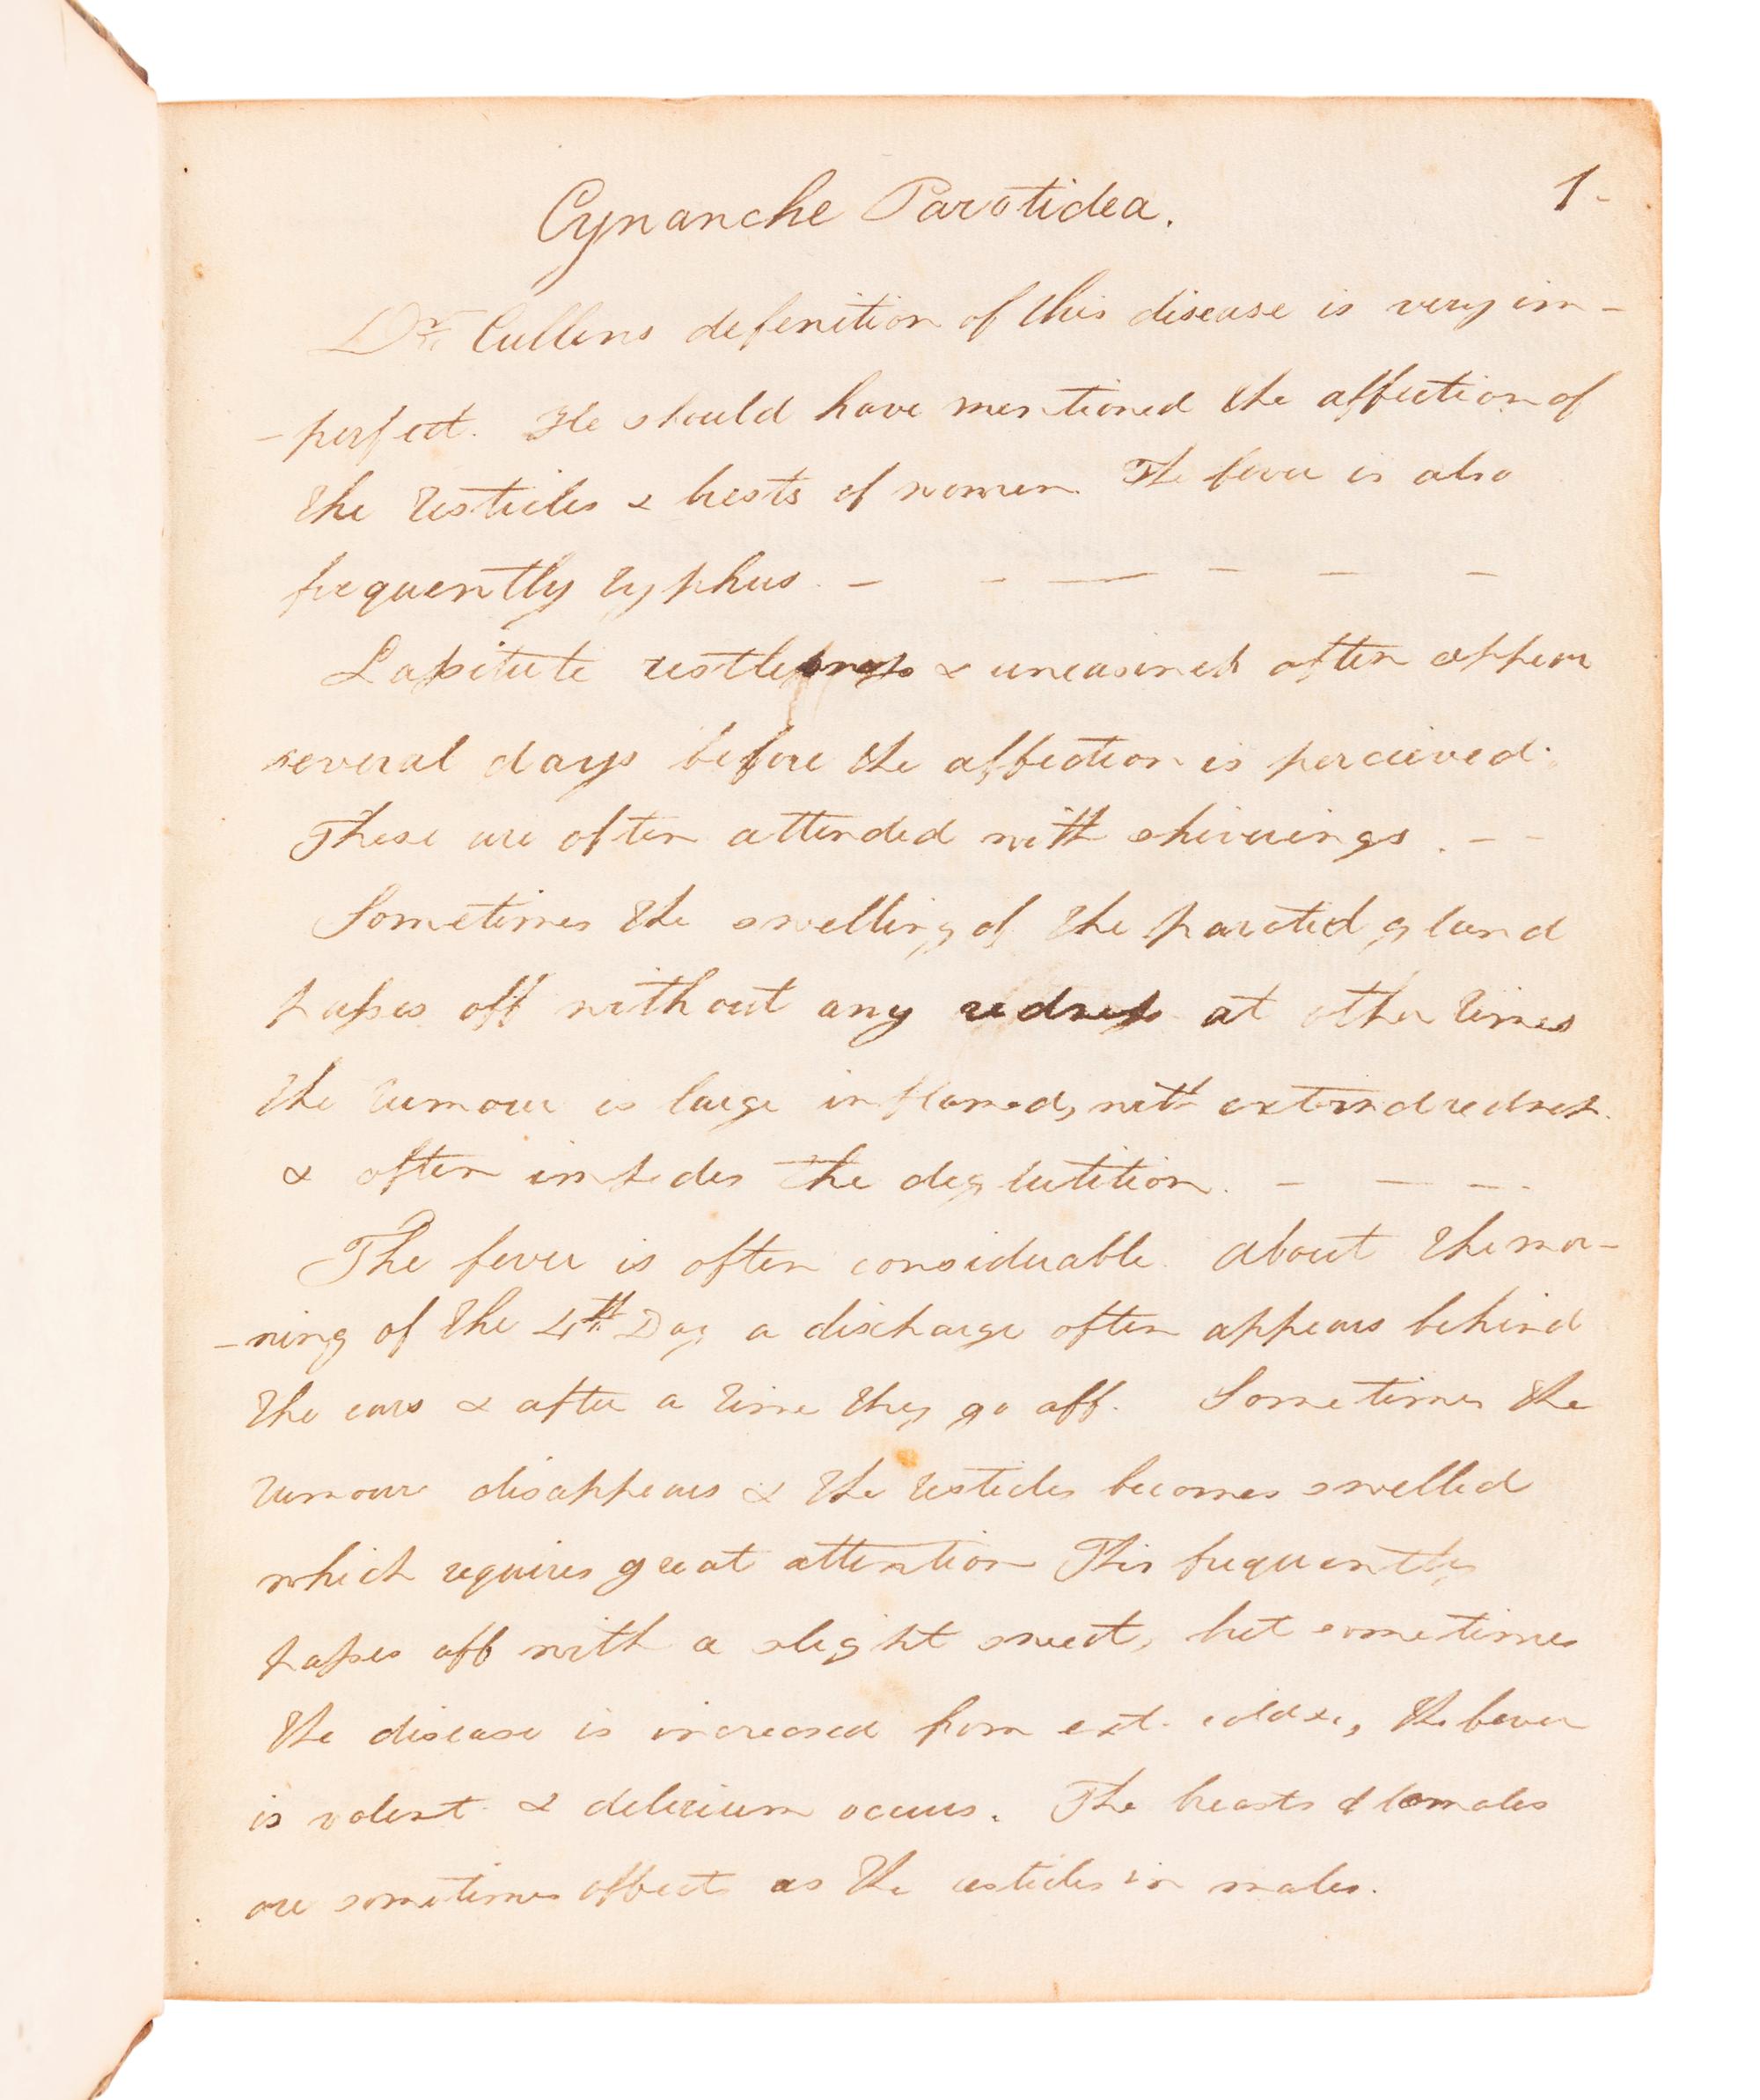 Cynanche Parotidea.
1-
Dr. Cullens defenition of this disease is very im-
-perfect. He should have mentioned the affection of
the testicles & brests of women. The fever is also
frequently typhus. - - — - - -
Lassitute restlessness & uneasiness often appear
several days before the affection is percieved.
These are often attended with shiverings. - -
Sometimes the swelling of the parotid gland
passes off without any redness at other times
the tumour is large inflamed, with extend redness.
& often impedes the deglutition. - — - -
The fever is often considerable. about the mor-
-ning of the 4th Day a discharge often appears behind
the ears & after a time they go off. Sometimes the
tumour disappears & the testicles becomes swelled
which requires great attention This frequently
passes off with a slight sweat, but sometimes
the disease is increased from ext. cold &c, the fever
is volent & delirium occurs. The breasts of females
are sometimes affects as the testicles in males.